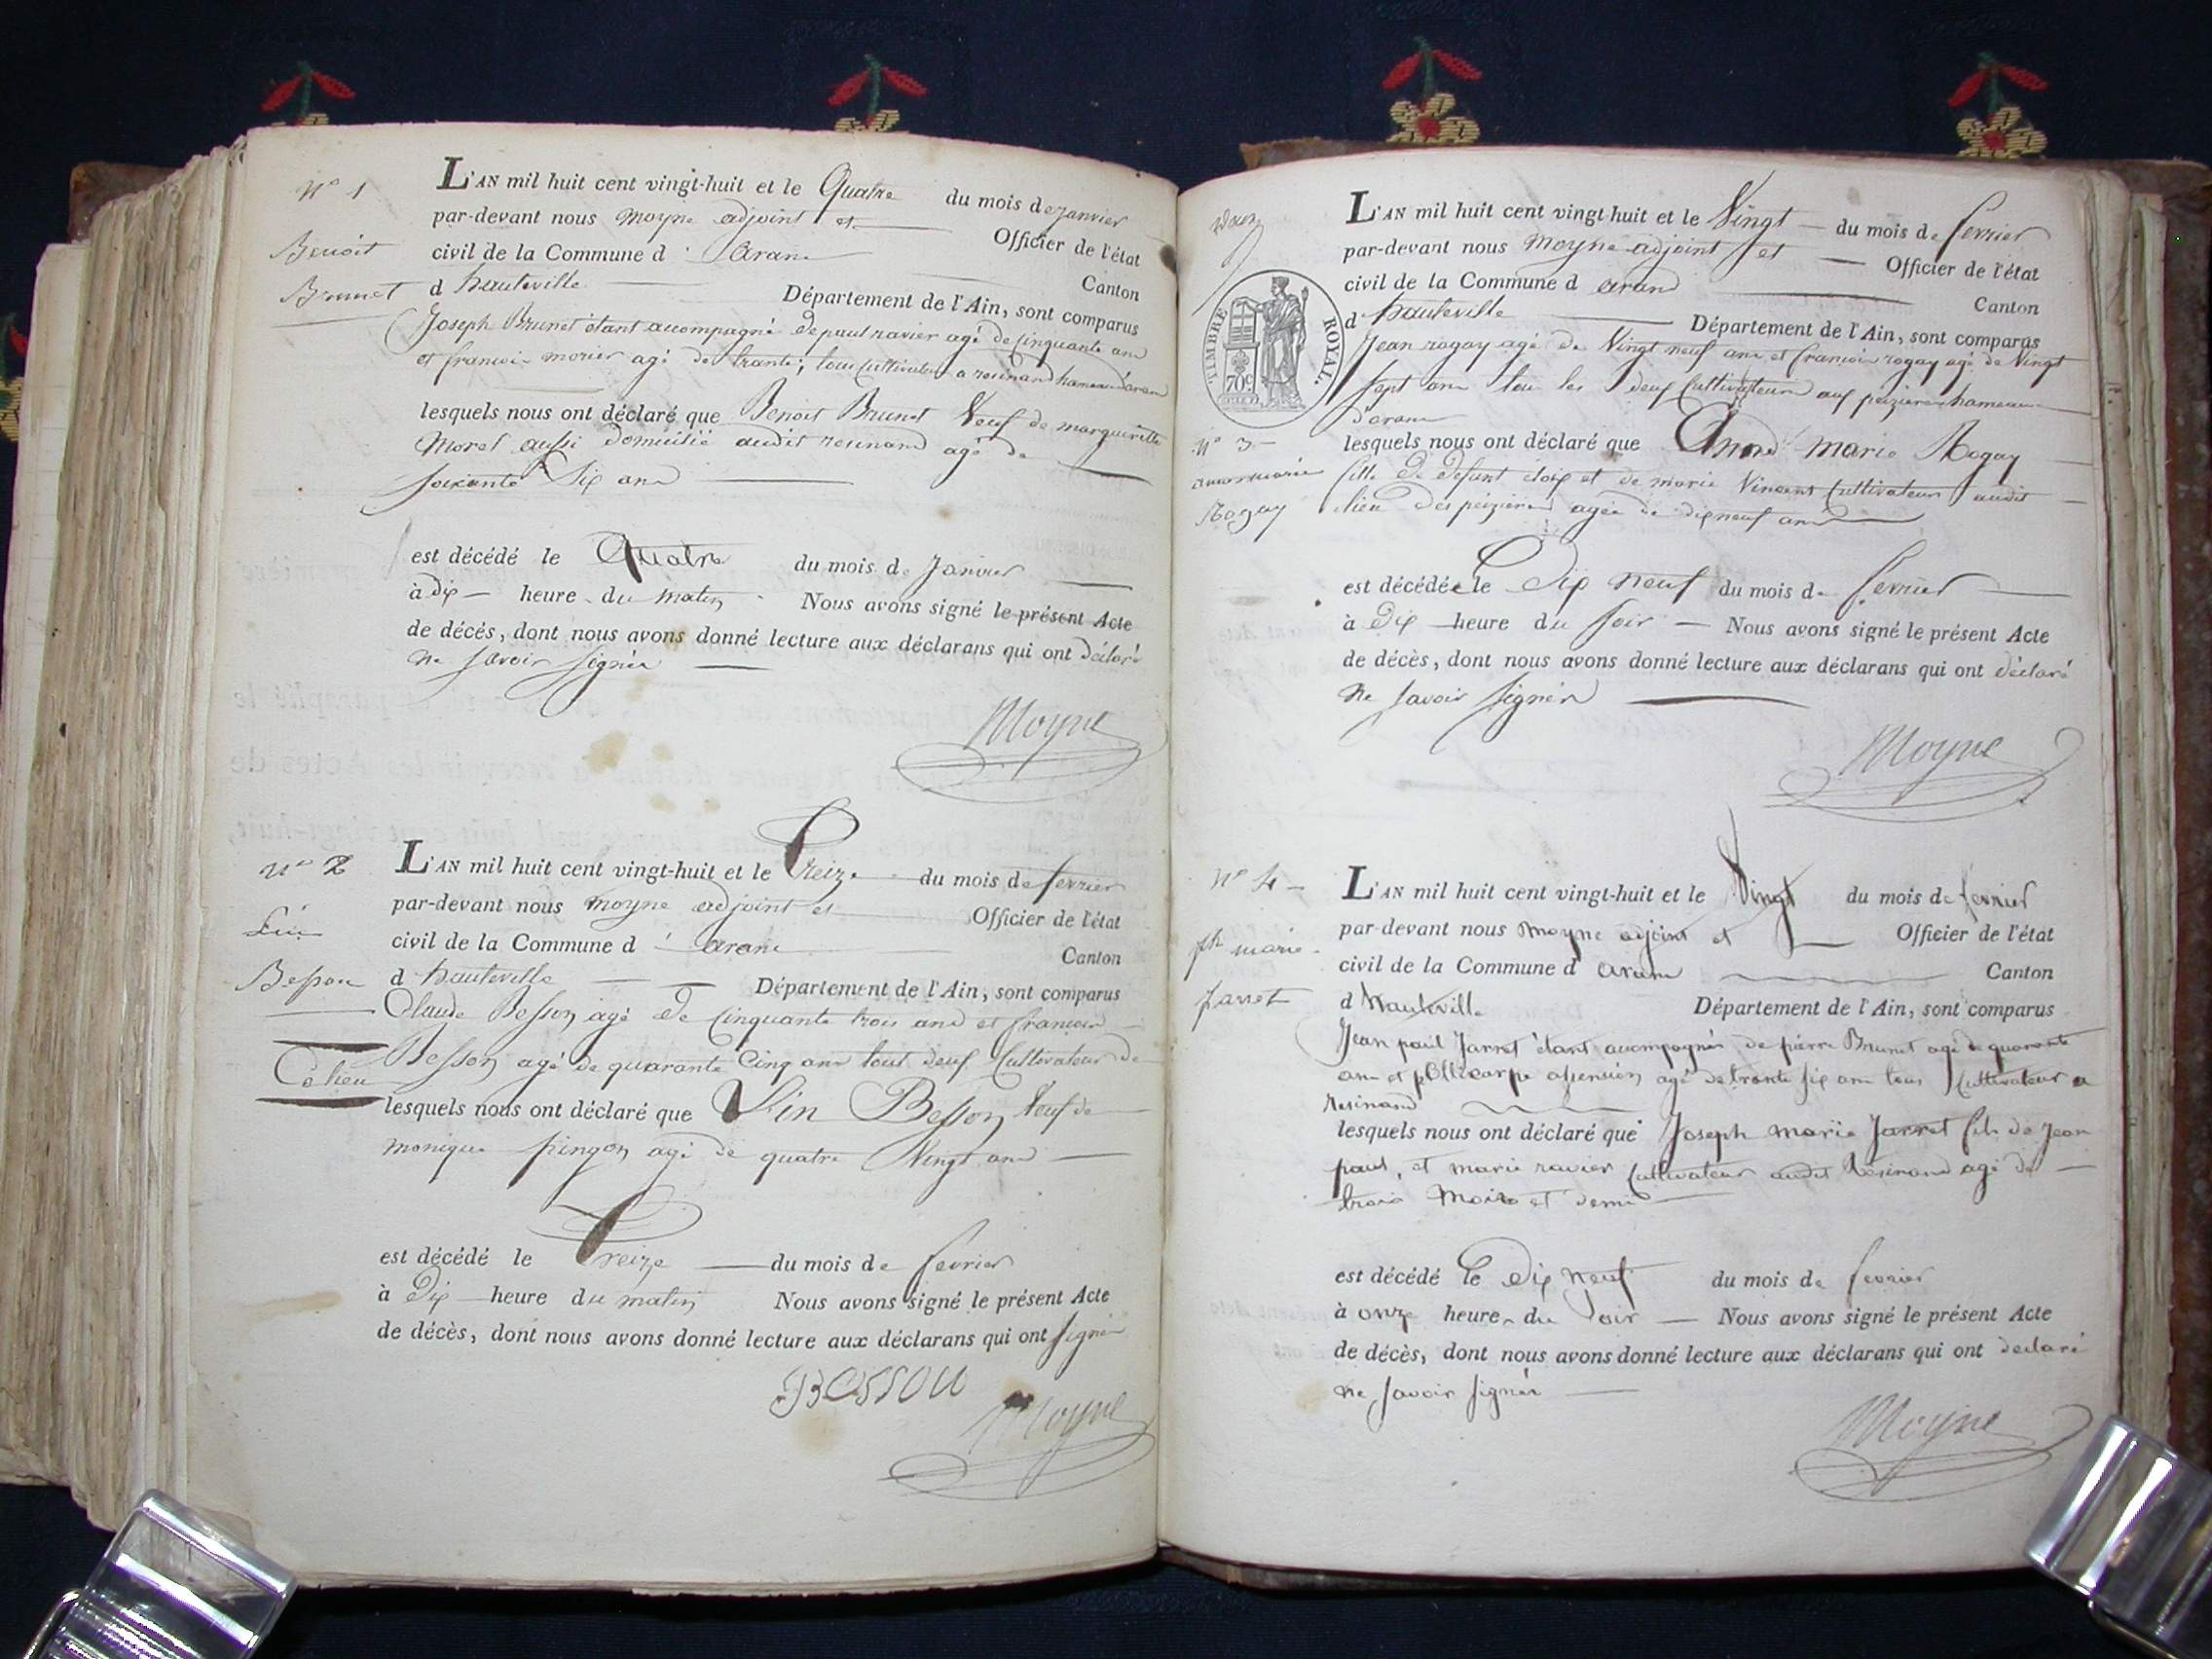 N° 1
Benoit
Brunet
L'AN mil huit cent vingt-huit et le Quatre du mois de janvier
par-devant nous moyne adjoint et Officier de l'état
civil de la Commune d'aranc Canton
d'hauteville Département de l'Ain, sont comparus
Joseph Brunet étant accompagné de paul ravier agé de cinquante ans
et francois morier agé de trante; tous cultivateurs a resinand hameau d'aranc
lesquels nous ont déclaré que Benoit Brunet Veuf de margueritte
Moret aussi domicilié audit resinand agé de
soixante Six ans
est décédé le Quatre du mois de Janvier
à dix heure du matin Nous avons signé le présent Acte
de décès, dont nous avons donné lecture aux déclarans qui ont déclaré
ne savoir signér
Moyne
N° 2
Lin
Besson
L'AN mil huit cent vingt-huit et le Treize du mois de fevrier
par-devant nous moyne adjoint et Officier de l'état
civil de la Commune d'aranc Canton
d'hauteville Département de l'Ain, sont comparus
Claude Besson agé de Cinquante trois ans et francois
Besson agé de quarante Cinq ans tout deux Cultivateur de
Ce lieu
lesquels nous ont déclaré que Lin Besson Veuf de
monique pingon agé de quatre Vingt ans
est décédé le Treize du mois de fevrier
à Dix heure du matin Nous avons signé le présent Acte
de décès, dont nous avons donné lecture aux déclarans qui ont signér
BESSON
Moyne
TIMBRE ROYAL.
70c
N° 3
anne marie
Rogay
L'AN mil huit cent vingt-huit et le Vingt du mois de fevrier
par-devant nous moyne adjoint et Officier de l'état
civil de la Commune d'aranc Canton
d'hauteville Département de l'Ain, sont comparus
Jean rogay agé de Vingt neuf ans et francois rogay agé de Vingt
sept ans tou les deux Cultivateurs aux pezieres hameau
d'aranc
lesquels nous ont déclaré que Anne marie Rogay
fille de defunt éloix et de marie Vincent Cultivateur audit
lieu des pézieres agée de dixneuf ans
est décédée le Dix neuf du mois de fevrier
à Dix heure du soir Nous avons signé le présent Acte
de décès, dont nous avons donné lecture aux déclarans qui ont déclaré
ne savoir signér
Moyne
N° 4
jh marie
jarret
L'AN mil huit cent vingt-huit et le Vingt du mois de fevrier
par-devant nous moyne adjoint et Officier de l'état
civil de la Commune d'aranc Canton
d'hauteville Département de l'Ain, sont comparus
Jean paul Jarret étant accompagnés de pierre Brunet agé de quarante
ans et pollicarpe assension agé de trante six ans tous Cultivateur a
resinand
lesquels nous ont déclaré que Joseph marie Jarret fils de Jean
paul, et marie ravier Cultivateur audit Résinand agé de
trois mois et demi
est décédé le Dix neuf du mois de fevrier
à onze heure du soir Nous avons signé le présent Acte
de décès, dont nous avons donné lecture aux déclarans qui ont declaré
ne savoir signér
Moyne